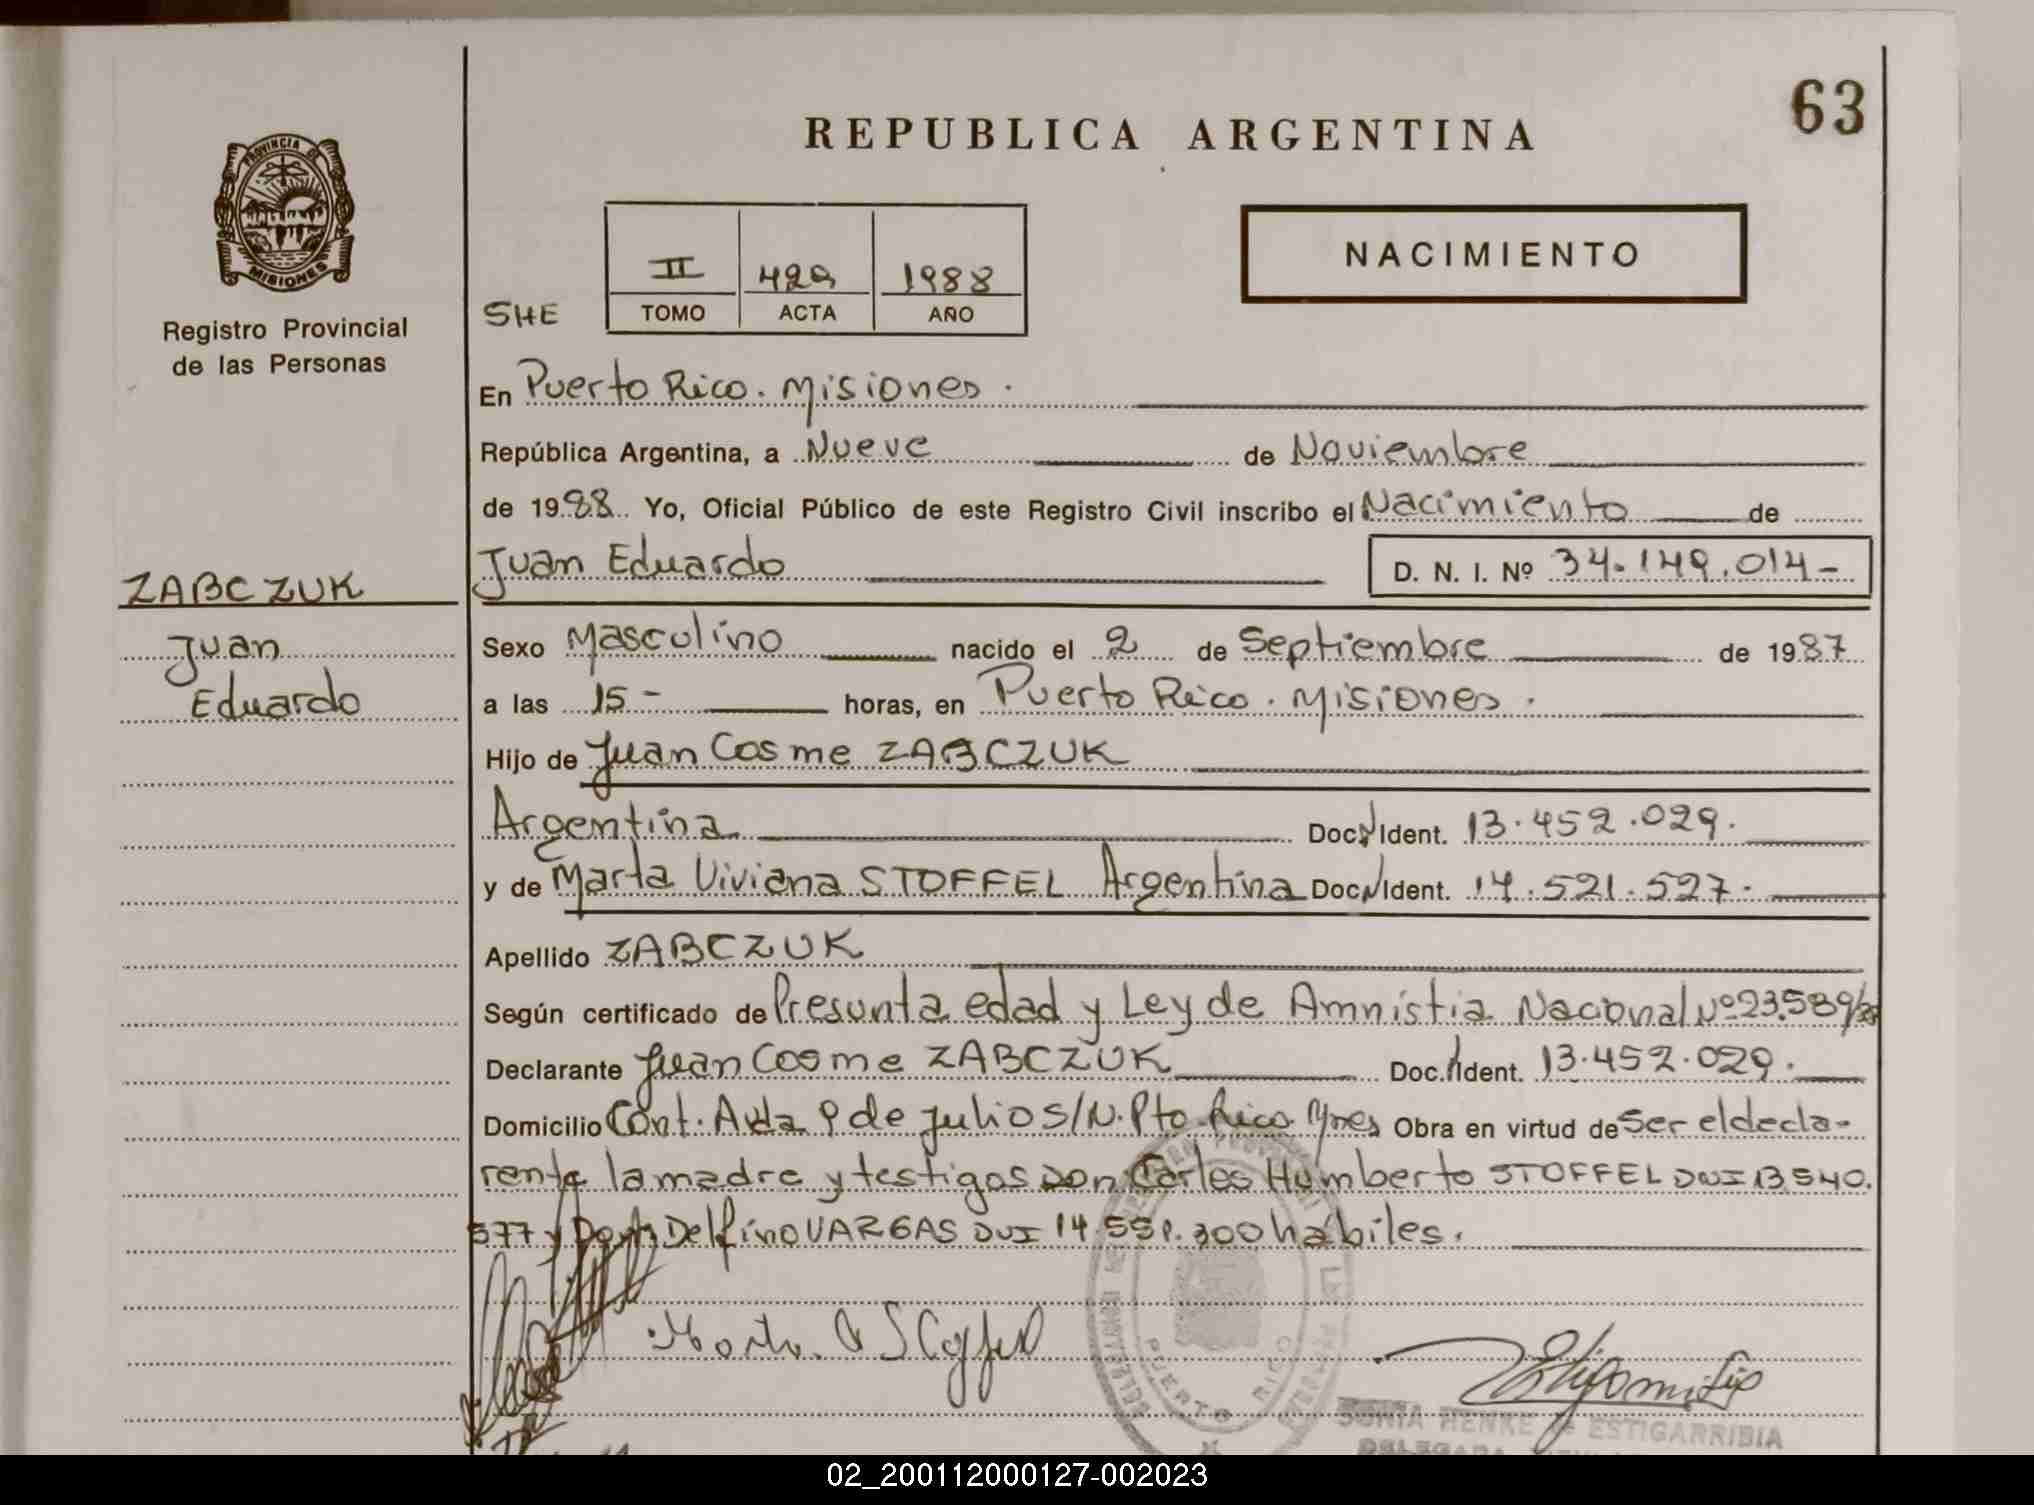 63
REPUBLICA ARGENTINA
PROVINCIA DE
MISIONES
Registro Provincial
de las Personas
II 429 1988
TOMO ACTA AÑO
NACIMIENTO
SHE
En Puerto Rico. Misiones.
República Argentina, a Nueve de Noviembre
de 1988 Yo, Oficial Público de este Registro Civil inscribo el Nacimiento de
Juan Eduardo D. N. I. Nº 34.149.014-
ZABCZUK
Juan
Eduardo
Sexo Masculino nacido el 2 de Septiembre de 1987
a las 15- horas, en Puerto Rico. Misiones.
Hijo de Juan Cosme ZABCZUK
Argentina Doc. Ident. 13.452.029.
y de Marta Viviana STOFFEL Argentina Doc. Ident. 14.521.527.
Apellido ZABCZUK
Según certificado de Presunta edad y Ley de Amnistia Nacional Nº 23.589/
Declarante Juan Cosme ZABCZUK Doc. Ident. 13.452.029.
Domicilio Cont. Avda 9 de Julio S/N. Pto Rico Mnes Obra en virtud de Ser el decla-
rente la madre y testigos Don Carlos Humberto STOFFEL DNI 13.540.
577 y Don Delfino VARGAS DNI 14.551.300 habiles.
PUERTO RICO
SONIA HENKE de ESTIGARRIBIA
DELEGADA
02_200112000127-002023